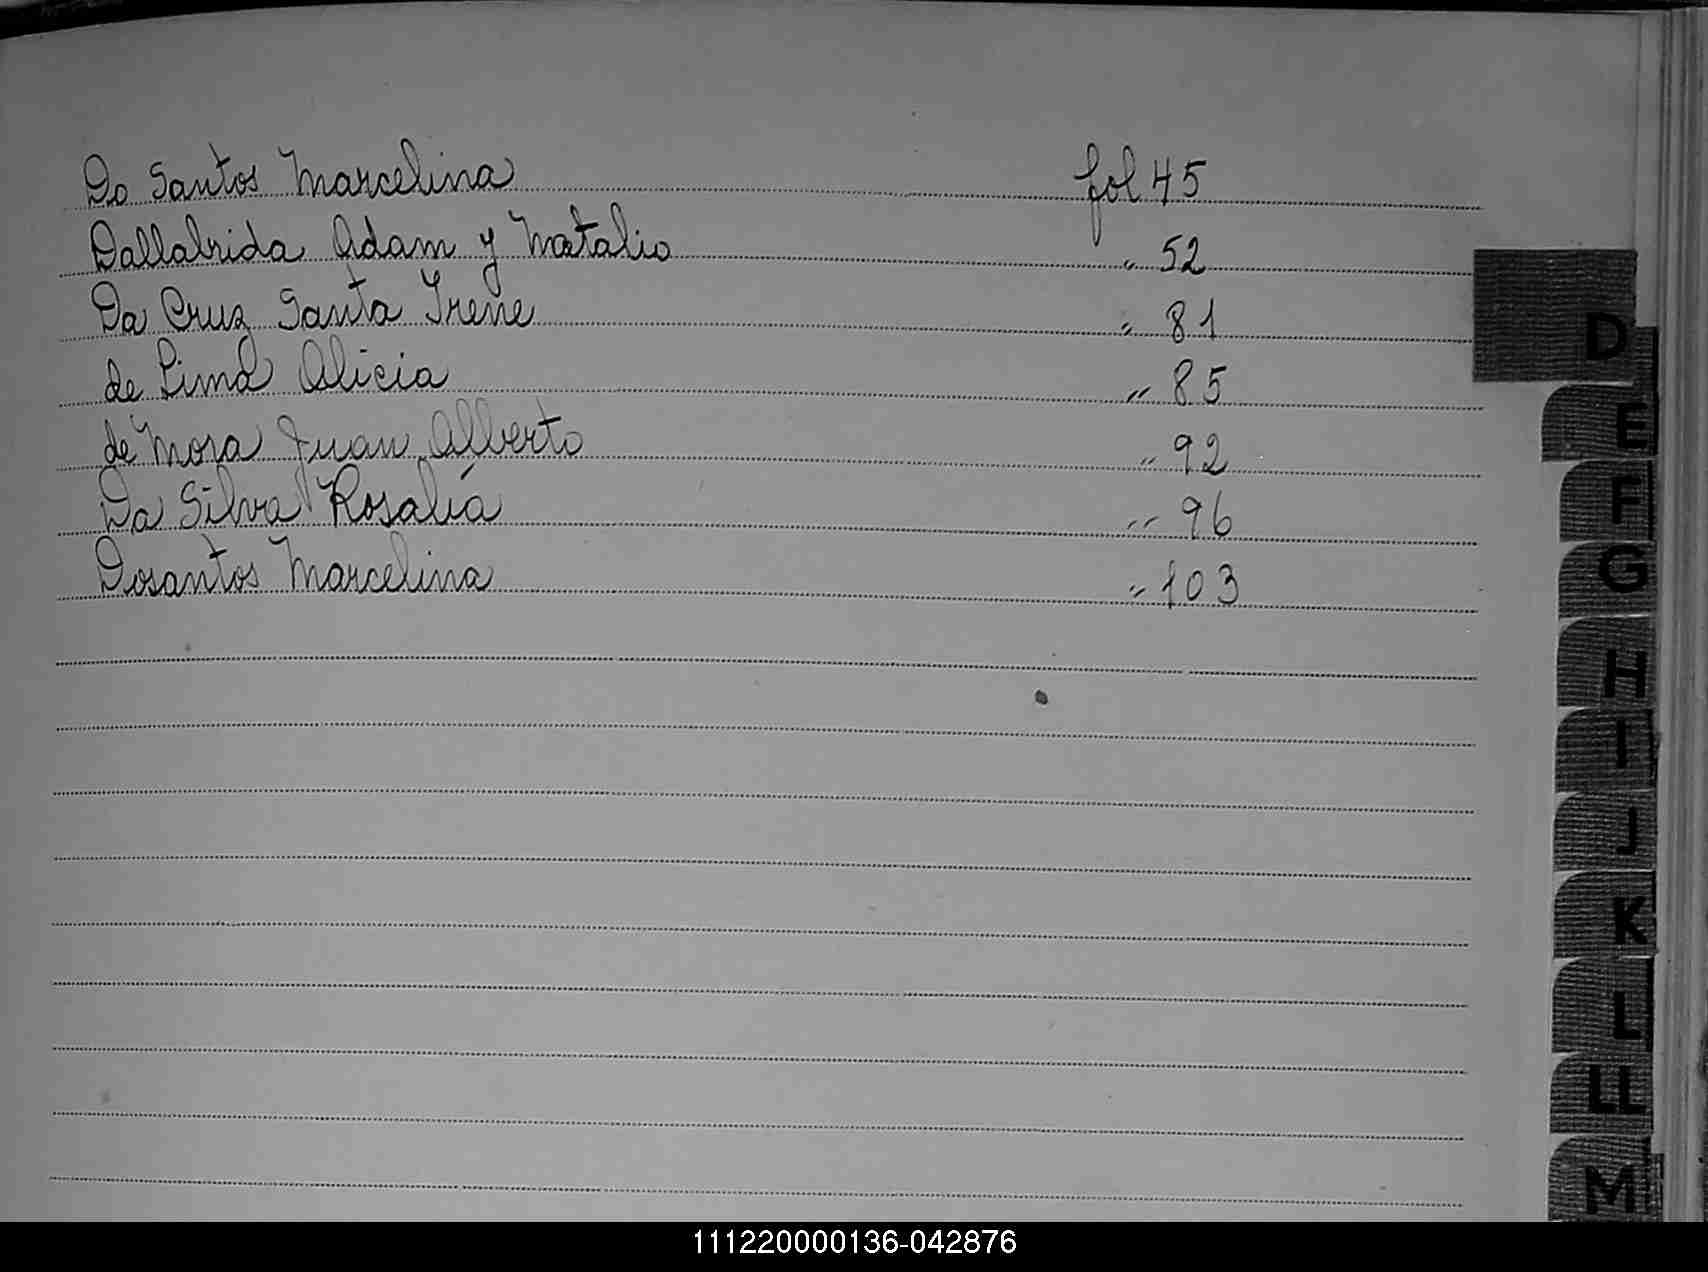 Do Santos Marcelina fol 45
Dallabrida Adam y Natalio " 52
Da Cruz Santa Irene " 81
de Lima Alicia " 85
de Mora Juan Alberto " 92
Da Silva Rosalía " 96
Dosantos Marcelina " 103
D
E
F
G
H
I
J
K
L
LL
M
111220000136-042876